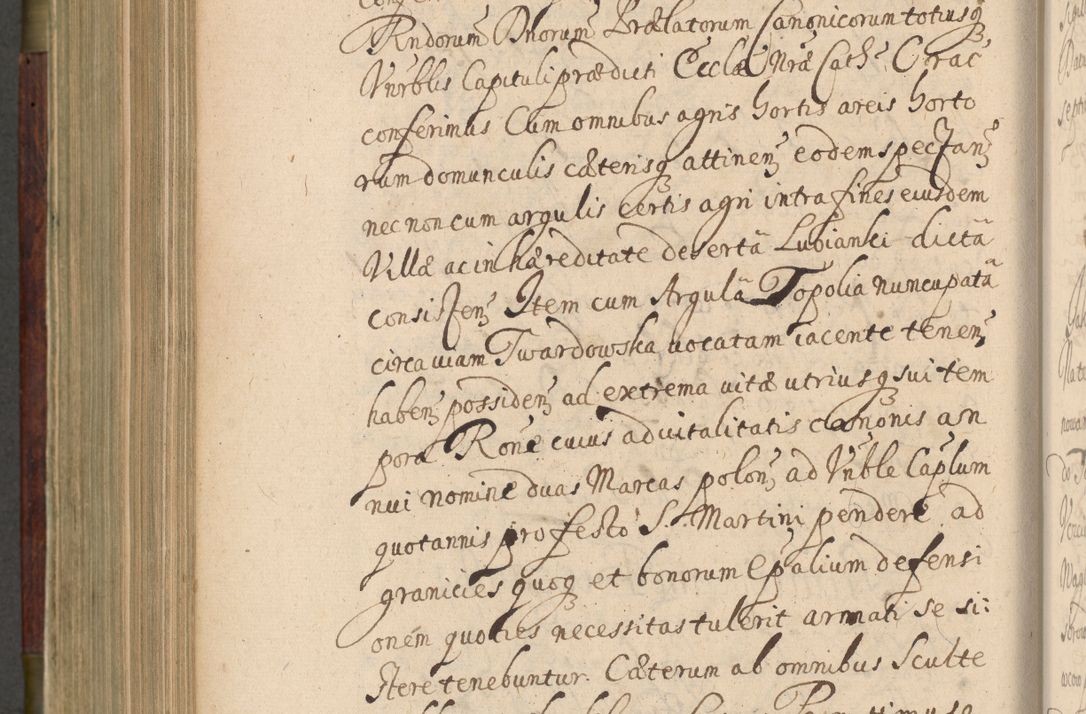 Rndorum Dnorum Prælatorum Canonicorum totiusq
Vnrblis Capituli prædicti Ecclæ Nræ Cath: Crac
conferimus Cum omnibus agris hortis areis horto
rum domunculis cæterisq attinen eodem spectan
nec non cum argulis certis agri intra fines eiusdem
Villæ ac in hæreditate desertã Lubianki dictã
consisten Item cum Argulã Topolia nuncupatã
circa uiam Twardowska uocatam iacente tenen
haben possiden ad extrema uitæ utriusq sui tem
pora Rone cuius aduitalitatis canonis an
nui nomine duas Marcas polon ad Vnble Caplum
quotannis pro festo S. Martini pendere ad
granicies quoq et bonorum Epalium defensi
onem quoties necessitas tulerit armati se si:
stere tenebuntur. Cæterum ab omnibus Sculte